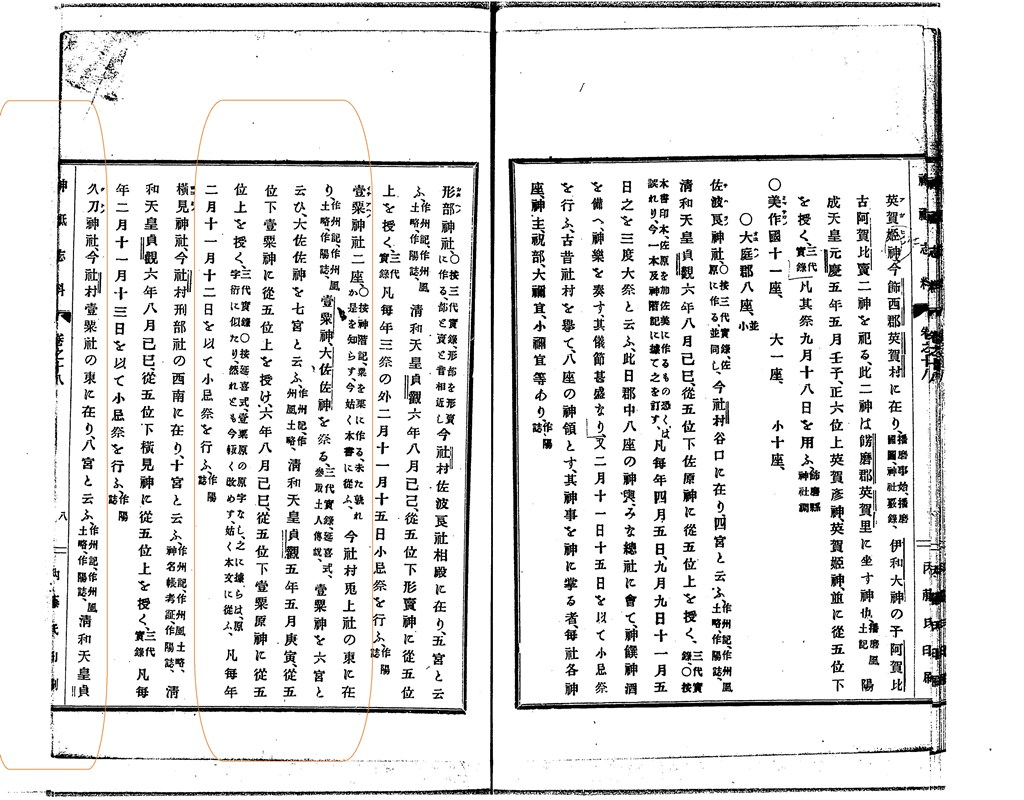 英賀姫神、今飾西郡英賀村に在り、播磨事始、播磨國圖神社襲錄、伊和大神の子阿賀比
古阿賀比賣二神を祀る、此二神は餝磨郡英賀里に坐す神也、播磨風土記陽
成天皇元慶五年五月壬子、正六位上英賀彦神、英賀姫神、並に從五位下
を授く、三代實錄凡其祭九月十八日を用ふ、飾磨縣神社調
〇美作國十一座、大一座、小十座、
〇大庭郡八座、並小
佐波良神社、〇按三代實錄、佐原に作る、並同し、今社村谷口に在り、四宮と云ふ、作州記、作州風土略、作陽誌、
清和天皇貞觀六年八月己巳、從五位下佐原神に從五位上を授く、三代實錄〇按
本書印本佐原を加佐美に作るもの恐くは誤れり、今一本及神階記に據て之を訂す、凡每年四月五日、九月九日十一月五
日之を三度大祭と云ふ、此日郡中八座の神輿、みな總社に會て、神饌神酒
を備へ、神樂を奏す、其儀節甚盛なり、又二月十一日十五日を以て小忌祭
を行ふ、古昔社村を擧て、八座の神領とす、其神事を神に掌る者、每社各神
座、神主、祝部大禰宜、小禰宜等あり、作陽誌
形部神社、〇按三代實錄、形部を形賣に作る、部と賣と音相近し今社村佐波良社相殿に在り、五宮と云
ふ、作州記、作州風土略、作陽誌、清和天皇貞觀六年八月己巳、從五位下形賣神に從五位
上を授く、三代實錄凡每年三祭の外二月十一月十五日小忌祭を行ふ、作陽誌
壹粟神社二座、〇按神階記、粟を栗に作る、未た孰れか是を知らす、今姑く本書に從ふ、今社村兎上社の東に在
り、作州記、作州風土略、作陽誌、壹粟神、大佐佐神を祭る、三代實錄、延喜式、參取土人傳說、壹粟神を六宮と
云ひ、大佐佐神を七宮と云ふ、作州記、作州風土略、清和天皇貞觀五年五月庚寅、從五
位下壹粟神に從五位上を授け、六年八月己巳、從五位下壹粟原神に從五
位上を授く、三代實錄〇按延喜式、壹粟原の原字なし、之に據らは、原字衍に似たり、然れとも今輙く改めす、姑く本文に從ふ、凡每年
二月十一月十二日を以て小忌祭を行ふ、作陽誌
橫見神社、今社村刑部社の西南に在り、十宮と云ふ、作州記、作州風土略、神名帳考証、作陽誌、清
和天皇貞觀六年八月己巳、從五位下橫見神に從五位上を授く、三代實錄凡每
年二月十一月十三日を以て小忌祭を行ふ、作陽誌
久刀神社、今社村壹粟社の東に在り、八宮と云ふ、作州記、作州風土略、作陽誌、清和天皇貞
神祇志料
卷之十八
八